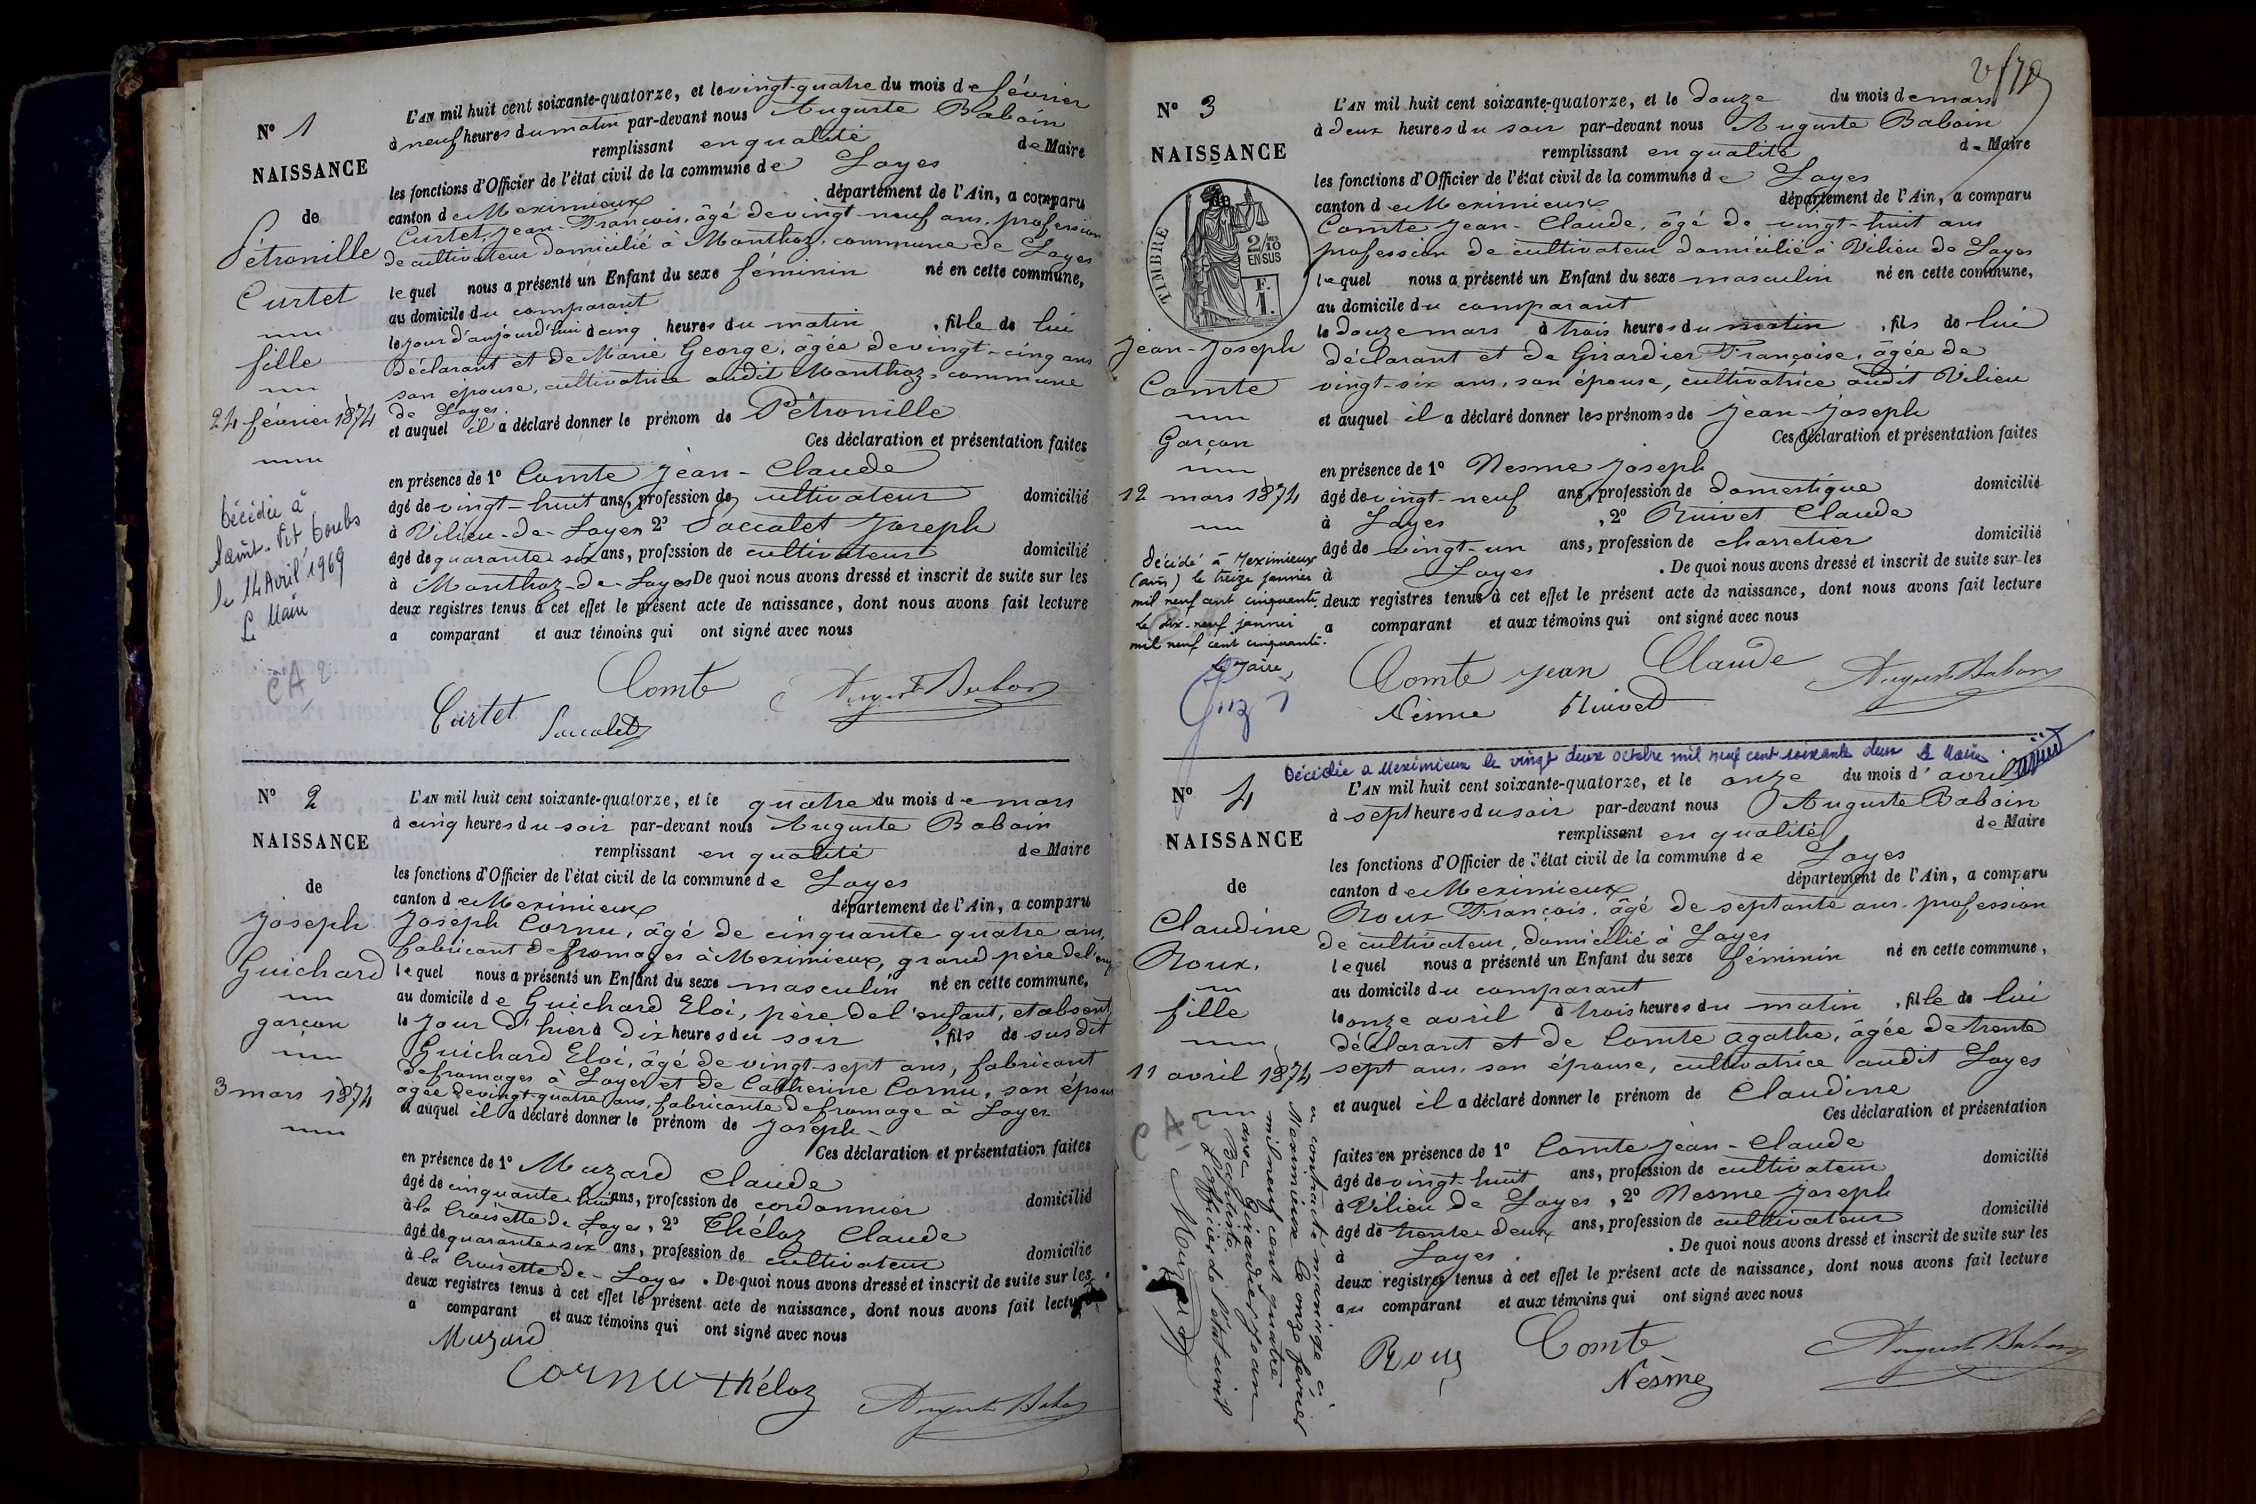 N° 1
NAISSANCE
de
Pétronille
Curtet
fille
24 février 1874
Décédée à
Saint-Vit Doubs
le 14 Avril 1969
Le Maire
L'AN mil huit cent soixante-quatorze, et le vingt-quatre du mois de février
à neuf heures du matin par-devant nous Auguste Baboin
remplissant en qualité de Maire
les fonctions d'Officier de l'état civil de la commune de Loyes
canton de Meximieux département de l'Ain, a comparu
Curtet, Jean-François, âgé de vingt-neuf ans, profession
de cultivateur domicilié à Monthoz, commune de Loyes
lequel nous a présenté un Enfant du sexe féminin né en cette commune,
au domicile du comparant
le jour d'aujourd'hui à cinq heures du matin, fille de lui
déclarant et de Marie George, âgée de vingt-cinq ans
son épouse, cultivatrice audit Monthoz, commune
de Loyes.
et auquel il a déclaré donner le prénom de Pétronille
Ces déclaration et présentation faites
en présence de 1° Comte Jean-Claude
âgé de vingt-huit ans, profession de cultivateur domicilié
à Vilieu-de-Loyes 2° Saccalet Joseph
âgé de quarante six ans, profession de cultivateur domicilié
à Monthoz-de-Loyes De quoi nous avons dressé et inscrit de suite sur les
deux registres tenus à cet effet le présent acte de naissance, dont nous avons fait lecture
a comparant et aux témoins qui ont signé avec nous
Comte Auguste Baboin
Curtet Saccalet
N° 2
NAISSANCE
de
Joseph
Guichard
garçon
3 mars 1874
L'AN mil huit cent soixante-quatorze, et le quatre du mois de mars
à cinq heures du soir par-devant nous Auguste Baboin
remplissant en qualité de Maire
les fonctions d'Officier de l'état civil de la commune de Loyes
canton de Meximieux département de l'Ain, a comparu
Joseph Cornu, âgé de cinquante quatre ans,
fabricant de fromages à Meximieux, grand père de l'enf
lequel nous a présenté un Enfant du sexe masculin né en cette commune,
au domicile de Guichard Eloi, père de l'enfant, et absent,
le jour d'hier à dix heures du soir, fils de susdit
Guichard Eloi, âgé de vingt-sept ans, fabricant
de fromages à Loyes et de Catherine Cornu, son épous
âgée de vingt-quatre ans, fabricante de fromage à Loyes
et auquel il a déclaré donner le prénom de Joseph-
Ces déclaration et présentation faites
en présence de 1° Muzard Claude
âgé de cinquante huit ans, profession de cordonnier domicilié
à la Croisette de Loyes, 2° Théloz Claude
âgé de quarante six ans, profession de cultivateur domicilié
à la Croisette de-Loyes. De quoi nous avons dressé et inscrit de suite sur les
deux registres tenus à cet effet le présent acte de naissance, dont nous avons fait lecture
a comparant et aux témoins qui ont signé avec nous
Muzard
Cornu théloz Auguste Baboin
N° 3
NAISSANCE
de
TIMBRE
2/10
EN SUS
F.
1.
Jean-Joseph
Comte
Garçon
12 mars 1874
Décédé à Meximieux
(ain) le treize janvier
mil neuf cent cinquante.
Le dix-neuf janvier
mil neuf cent cinquante.
Le Maire,
L'AN mil huit cent soixante-quatorze, et le douze du mois de mars
à deux heures du soir par-devant nous Auguste Baboin
remplissant en qualité d- Maire
les fonctions d'Officier de l'état civil de la commune de Loyes
canton de Meximieux département de l'Ain, a comparu
Comte Jean-Claude, âgé de vingt-huit ans
profession de cultivateur domicilié à Vilieu de Loyes
lequel nous a présenté un Enfant du sexe masculin né en cette commune,
au domicile du comparant
le douze mars à trois heures du matin, fils de lui
déclarant et de Girardier Françoise, âgée de
vingt-six ans, son épouse, cultivatrice audit Vilieu
et auquel il a déclaré donner les prénoms de Jean-Joseph
Ces déclaration et présentation faites
en présence de 1° Nesme Joseph
âgé de vingt-neuf ans, profession de domestique domicilié
à Loyes, 2° Ruivet Claude
âgé de vingt-un ans, profession de charretier domicilié
à Loyes. De quoi nous avons dressé et inscrit de suite sur les
deux registres tenus à cet effet le présent acte de naissance, dont nous avons fait lecture
a comparant et aux témoins qui ont signé avec nous
Comte Jean Claude Auguste Baboin
Nesme Ruivet
Décédée à Meximieux le vingt deux octobre mil neuf cent soixante deux Le Maire
N° 4
NAISSANCE
de
Claudine
Roux.
fille
11 avril 1874
a contracté mariage à
Meximieux le onze février
mil neuf cent quatre
avec Girardier Jean
Baptiste
L'officier de l'état civil
Muzard
L'AN mil huit cent soixante-quatorze, et le onze du mois d'avril
à sept heures du soir par-devant nous Auguste Baboin
remplissant en qualité de Maire
les fonctions d'Officier de l'état civil de la commune de Loyes
canton de Meximieux département de l'Ain, a comparu
Roux François, âgé de septante ans, profession
de cultivateur, domicilié à Loyes
lequel nous a présenté un Enfant du sexe féminin né en cette commune,
au domicile du comparant
le onze avril à trois heures du matin, fille de lui
déclarant et de Comte Agathe, âgée de trente
sept ans, son épouse, cultivatrice audit Loyes
et auquel il a déclaré donner le prénom de Claudine
Ces déclaration et présentation
faites en présence de 1° Comte Jean-Claude
âgé de vingt-huit ans, profession de cultivateur domicilié
à Vilieu de Loyes, 2° Nesme Joseph
âgé de trente deux ans, profession de cultivateur domicilié
à Loyes. De quoi nous avons dressé et inscrit de suite sur les
deux registres tenus à cet effet le présent acte de naissance, dont nous avons fait lecture
au comparant et aux témoins qui ont signé avec nous
Roux Comte Auguste Baboin
Nesme